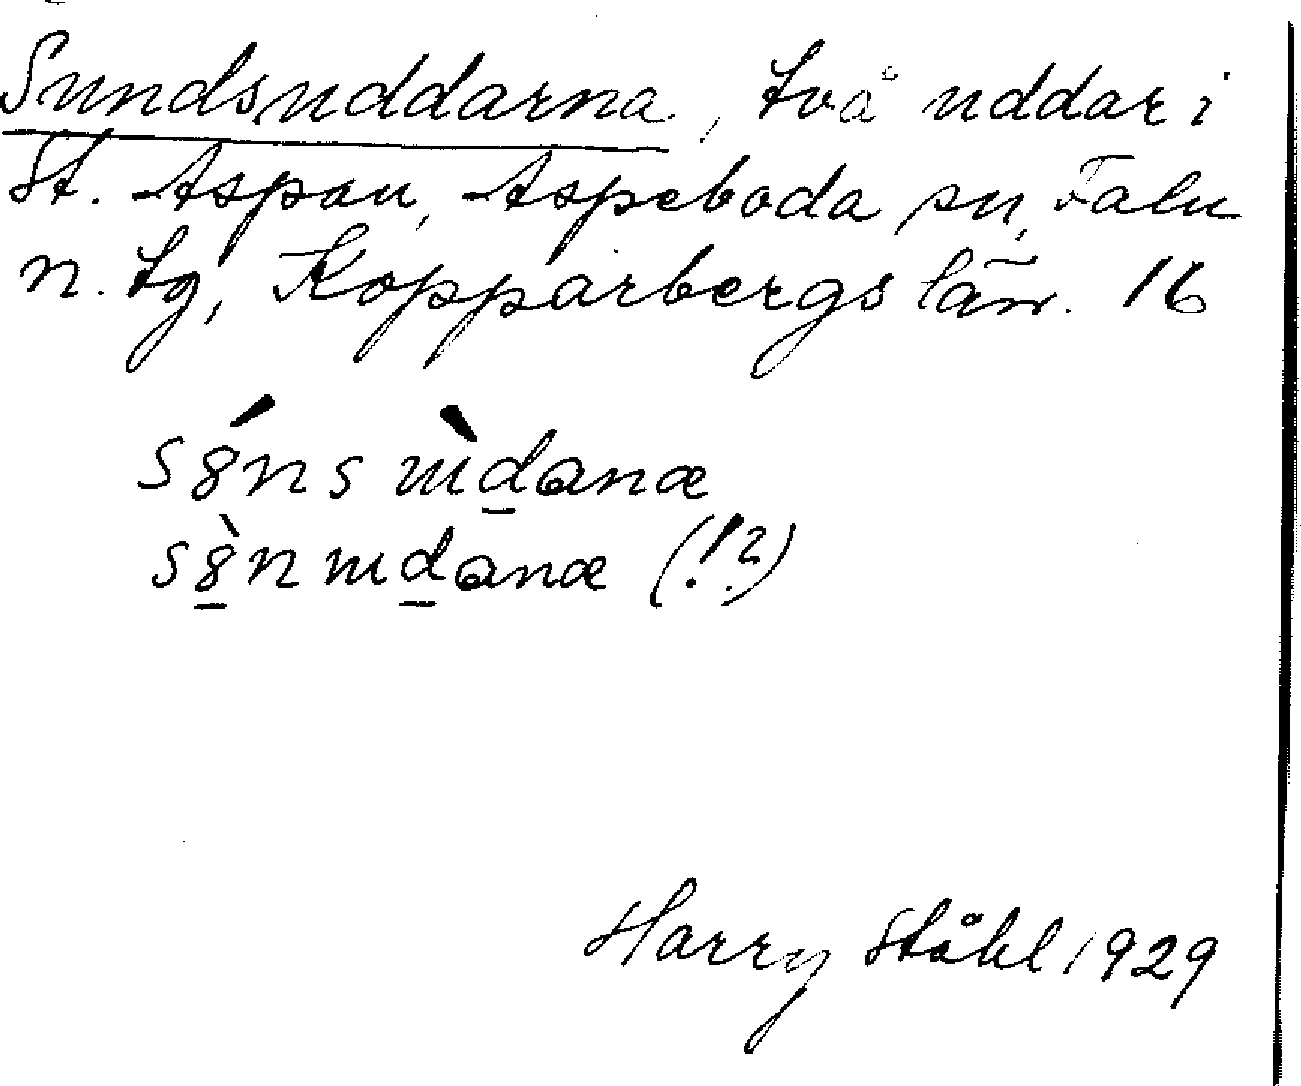 Sundsuddarna, två uddar i
St. Aspan, Aspeboda sn, Falu
n. tg, Kopparbergs län. 16
s8́ns ɯ̀d̲anæ
s8̲̀nɯd̲anæ (!?)
Harry Ståhl 1929